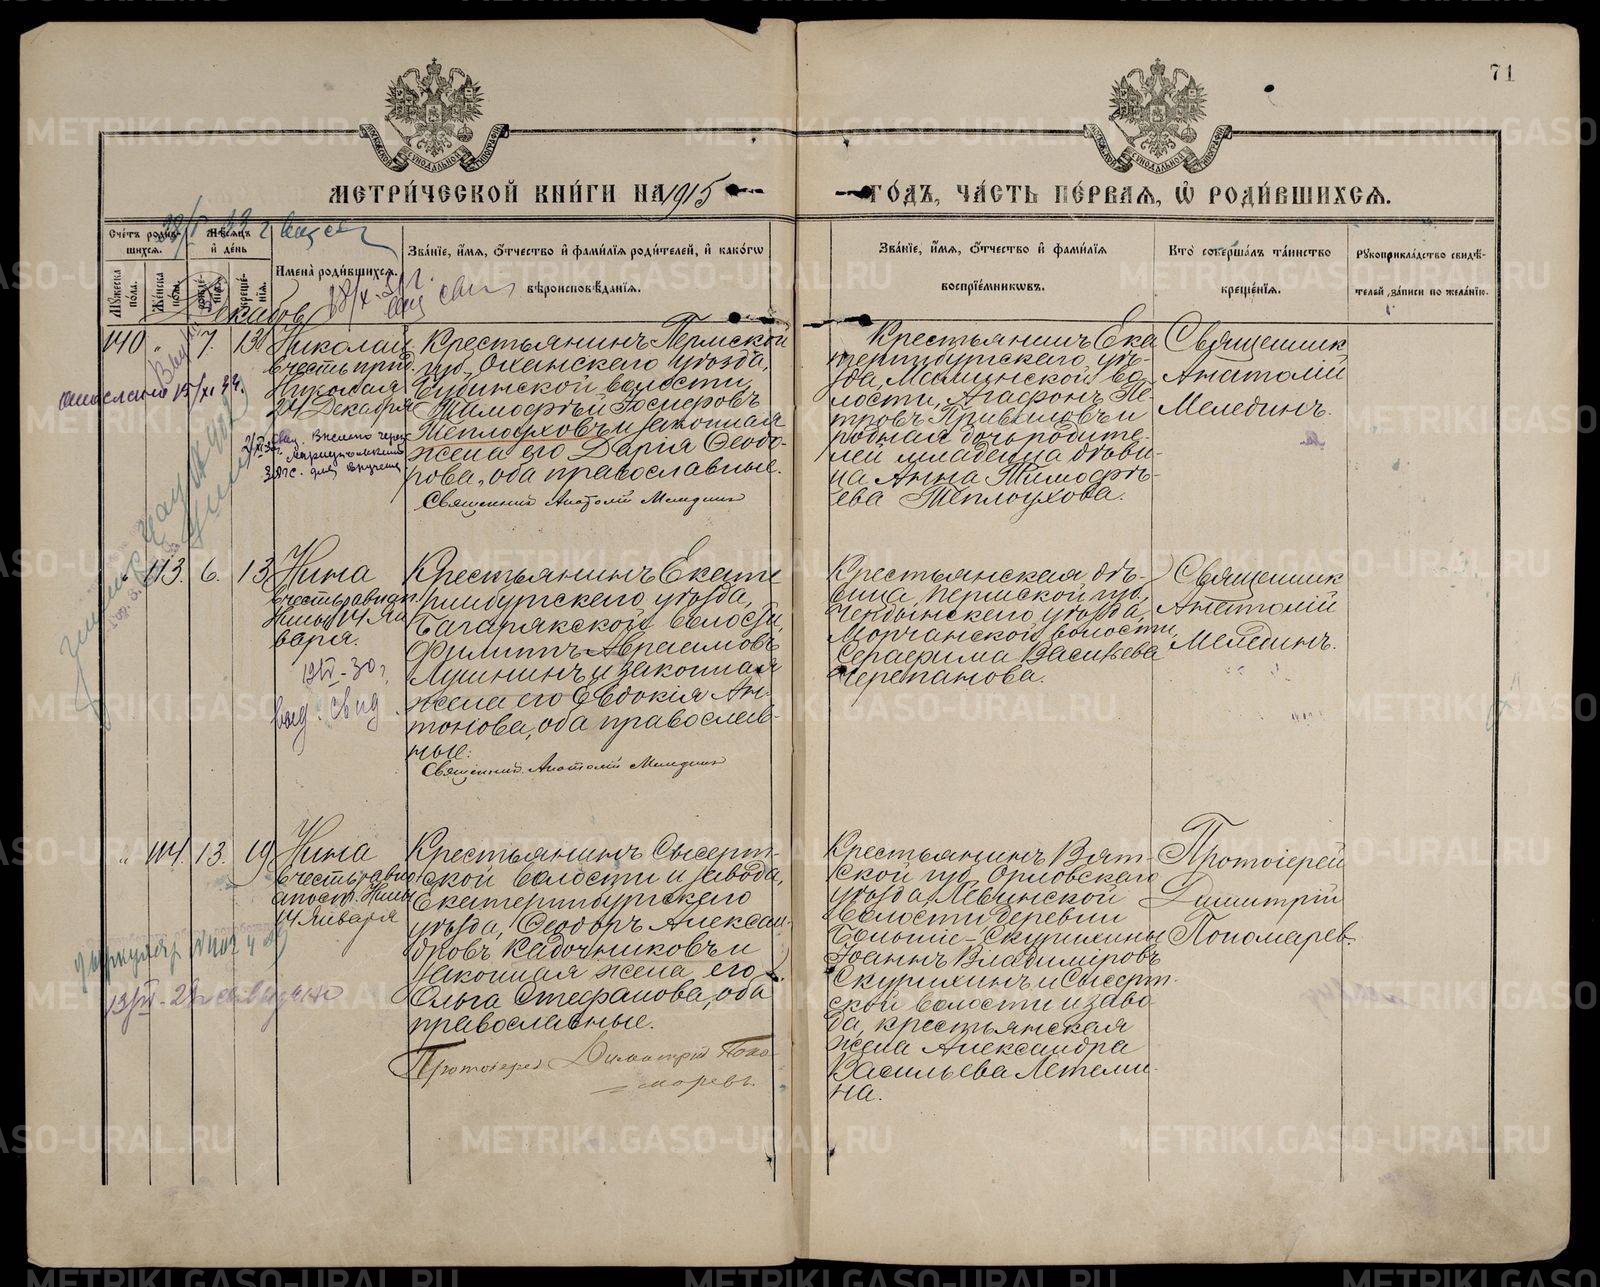 71
МЕТРИЧЕСКОЙ КНИГИ НА 1915
ГОДЪ, ЧАСТЬ ПЕРВАЯ, Ѡ РОДИВШИХСЯ.
Счетъ родившихся.
Мужеска пола.
Женска пола.
Мѣсяцъ и день
рожденія.
крещенія.
Имена родившихся.
Званіе, имя, отчество и фамилія родителей, и какогѡ
вѣроисповѣданія.
Званіе, имя, отчество и фамилія
воспріемникѡвъ.
Кто совершалъ таинство
крещенія.
Рукоприкладство свидѣ-
телей записи по желанію.
Декабрь
140 " 7. 13
Николай
въ честь прав.
Николая
24 Декабря
Крестьянинъ Пермской
губ. Оханскаго уѣзда,
волости,
Тимофѣй Осиповъ
Теплоуховъ и законная
жена его Дарія Ѳеодо-
рова, оба православные.
Священникъ Анатолій Мелединъ
Крестьянинъ Ека
теринбургскаго уѣ-
зда, Маминской во-
лости, Агафонъ Пе-
тровъ Приваловъ и
родная дочь родите-
лей младенца дѣви-
ца Анна Тимофѣ-
ева Теплоухова.
Священникъ
Анатолій
Мелединъ.
" 113. 6. 13
Нина
въ честь равноап.
Нины 14 Ян
варя.
19/VI-30 г.
выд. свид.
Крестьянинъ Екате
ринбургскаго уѣзда,
Багарякской волости,
Филиппъ Аврамовъ
Лушнинъ и законная
жена его Евдокія Ан-
тонова, оба православ-
ные.
Священникъ Анатолій Мелединъ
Крестьянская дѣ-
вица Пермской губ.
Чердынскаго уѣзда,
Морчанской волости
Серафима Васильева
Черепанова.
Священникъ
Анатолій
Мелединъ.
" 114. 13. 19
Нина
въ честь равно
апост. Нины
14 Января
Крестьянинъ Сысерт-
ской волости и завода,
Екатеринбургскаго
уѣзда, Ѳеодоръ Алексан-
дровъ Кадочниковъ и
законная жена его
Ольга Стефанова, оба
православные.
Протоіерей Димитрій Поно-
маревъ.
Крестьянинъ Вят-
ской губ. Орловскаго
уѣзда, Левинской
волости деревни
Большіе-Скурихины
Іоаннъ Владиміровъ
Скурихинъ и Сысерт-
ской волости и заво
да, крестьянская
жена Александра
Васильева Летеми-
на.
Протоіерей
Димитрій
Пономарев.